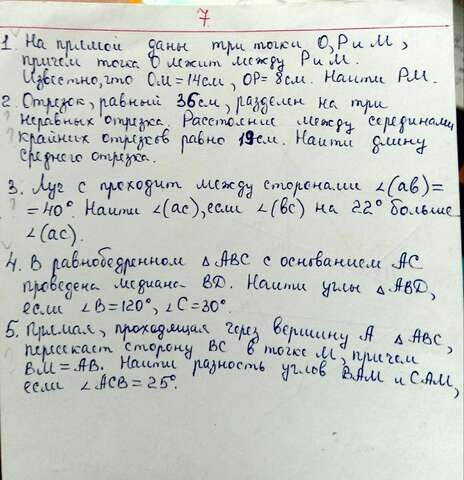 7
1. На прямой даны три точки О, Р и М,
причем точка О лежит между Р и М.
Известно, что ОМ = 14 см, ОР = 8 см. Найти РМ.
2. Отрезок, равный 36 см, разделен на три
неравных отрезка. Расстояние между серединами
крайних отрезков равно 19 см. Найти длину
среднего отрезка.
3. Луч с проходит между сторонами ∠(ab) =
= 40°. Найти ∠(ac), если ∠(bc) на 22° больше
∠(ac).
4. В равнобедренном △ABC с основанием AC
проведена медиана BD. Найти углы △ABD,
если ∠B = 120°, ∠C = 30°.
5. Прямая, проходящая через вершину A △ABC,
пересекает сторону BC в точке M, причем
BM = AB. Найти разность углов BAM и CAM,
если ∠ACB = 25°.